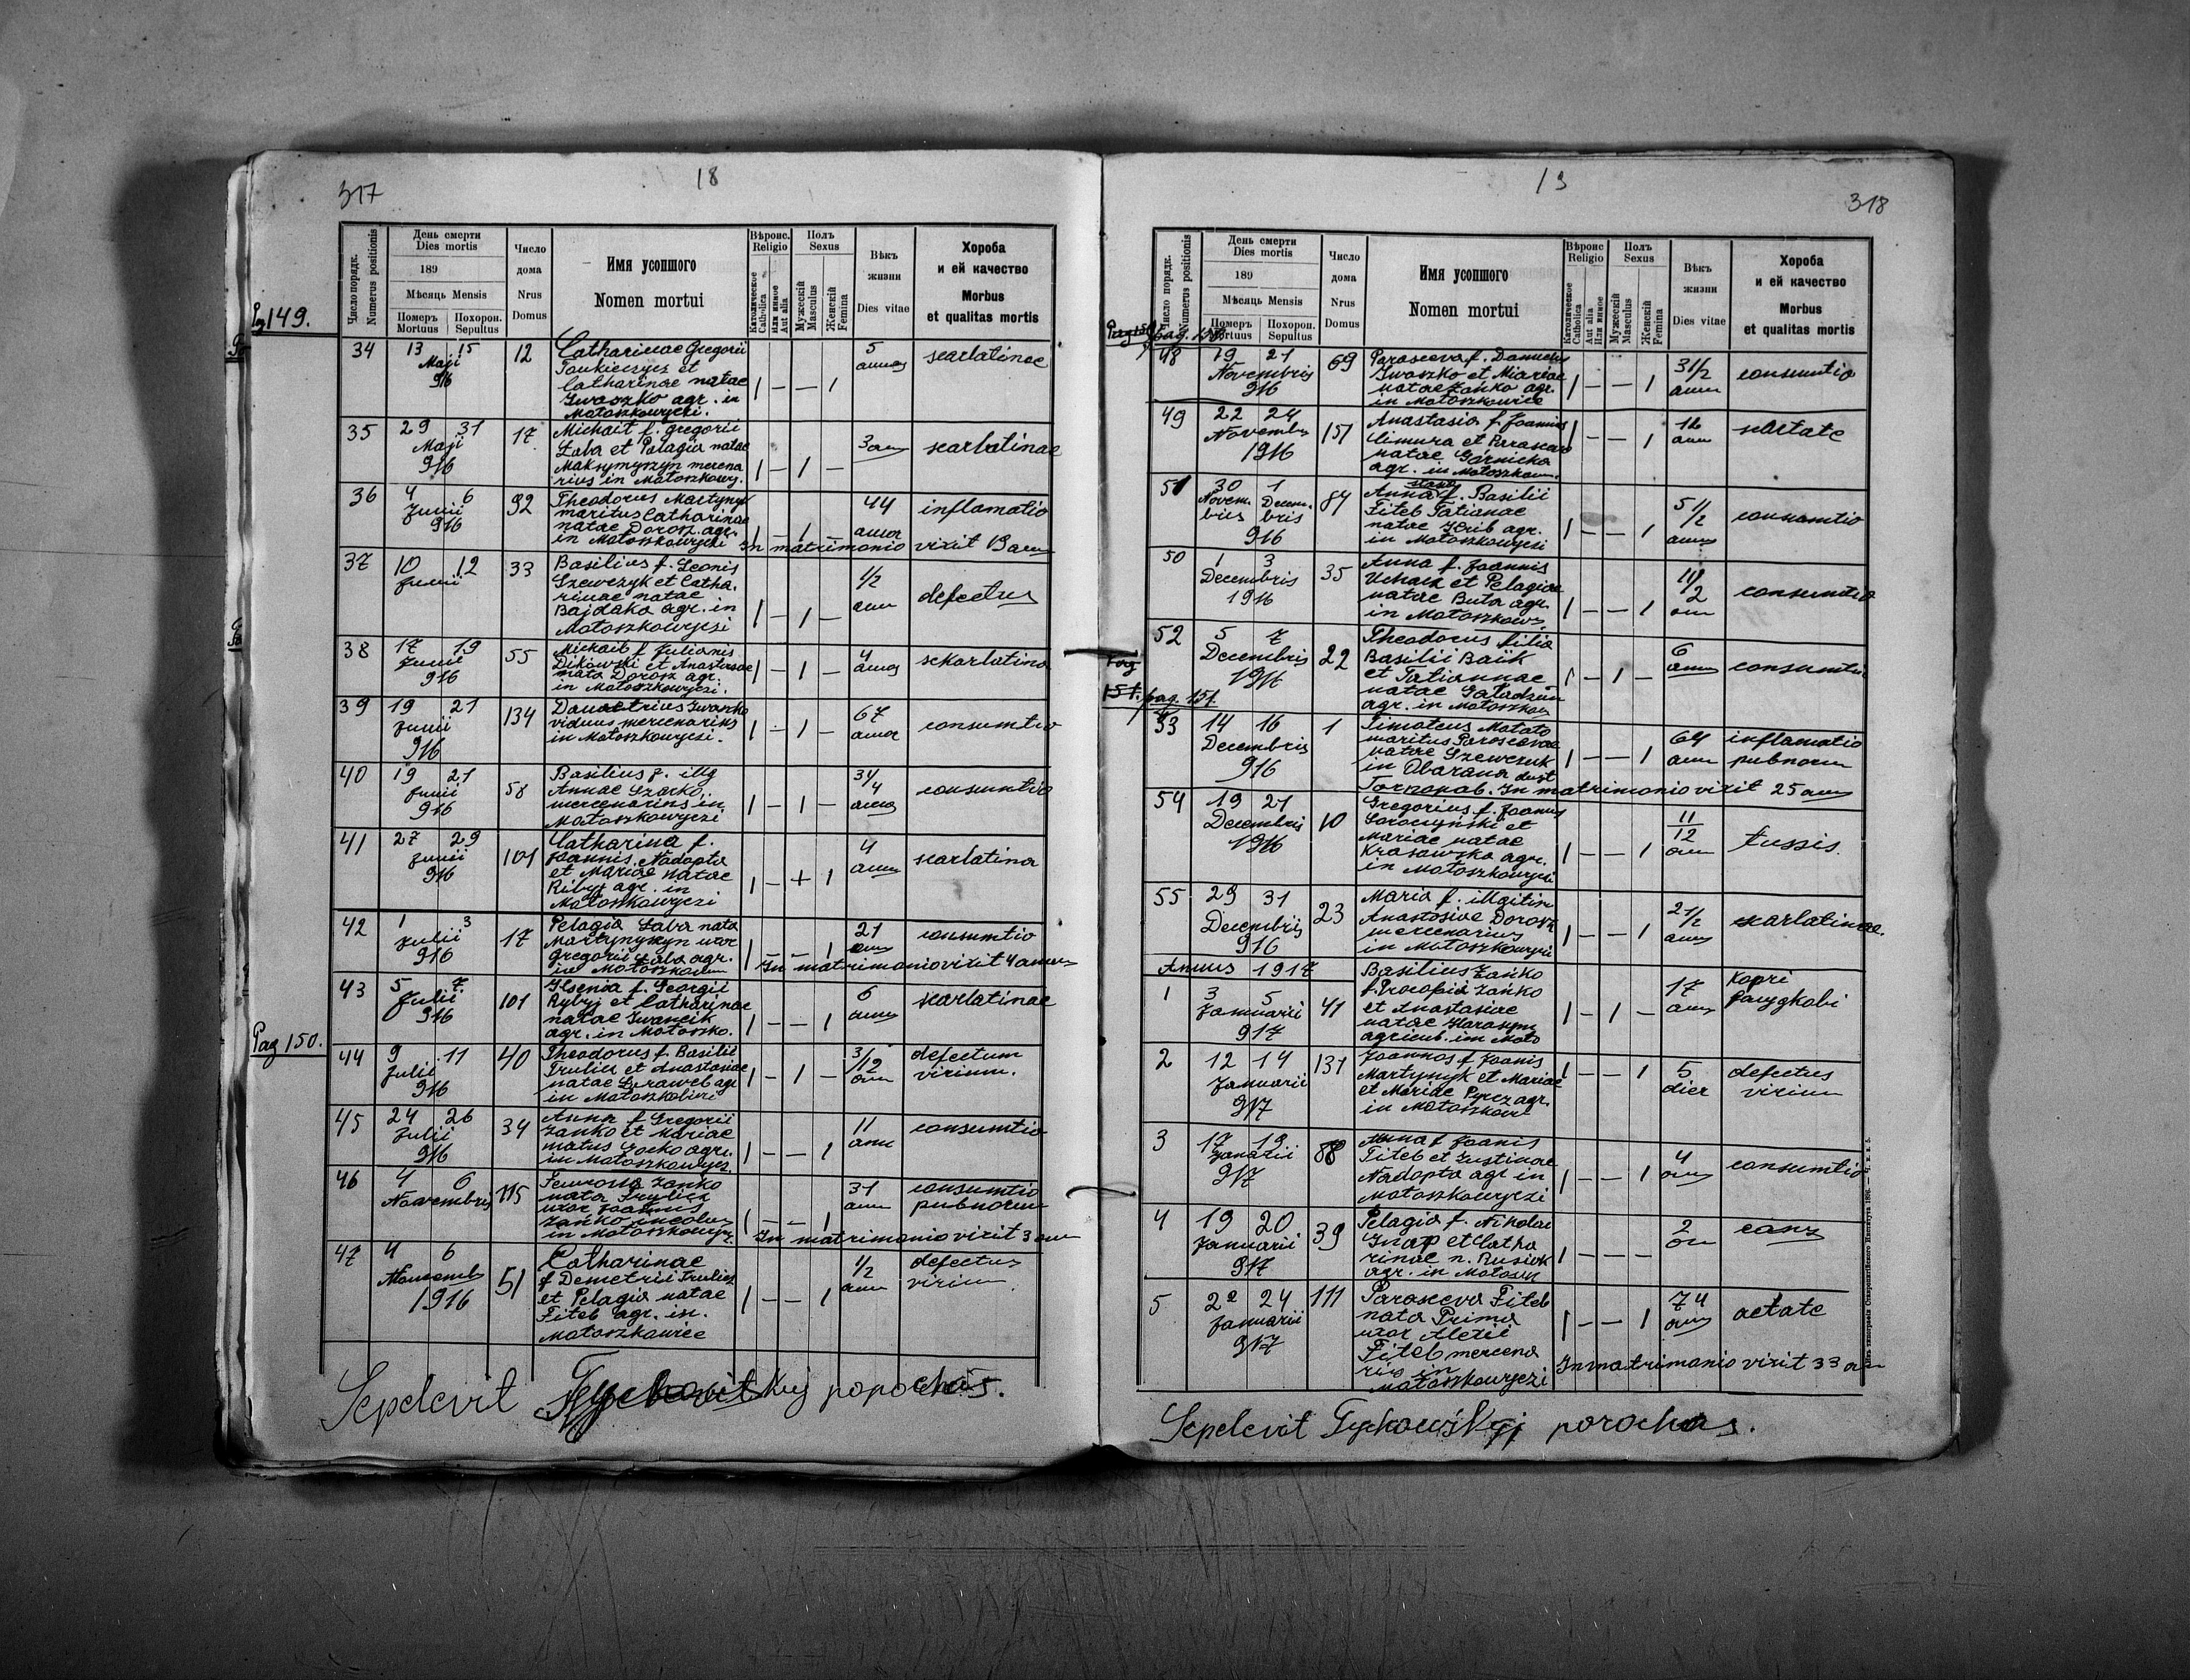 317
18
Число порядк.
Numerus positionis
День смерти
Dies mortis
189
Мѣсяць Mensis
Померъ
Mortuus
Похорон.
Sepultus
Число
дома
Nrus
Domus
Имя усопшого
Nomen mortui
Вѣроис.
Religio
Католическое
Catholica
Или инное
Aut alia
Полъ
Sexus
Мужескій
Masculus
Женскій
Femina
Вѣкъ
жизни
Dies vitae
Хороба
и ей качество
Morbus
et qualitas mortis
Pg 149.
34 13 15 12 Catharinae Gregorii 5 scarlatinae
Maji et annos
916 Catharinae natae 1 — — 1
Iwaszko agr. in
Matoszkowyczi.
35 29 31 17 Michail f. gregorii 3 ann scarlatinae
Maji Laba et Pelagia natae
916 Maksymyszyn mercena 1 — 1 —
rius in Matoszkowy.
36 4 6 92 Theodorus Martynyk 44 inflamatio
Junii maritus Catharinae annor
916 natae Dorosz agr. 1 — 1 —
in Matoszkowyczi In matrimonio vixit 13 ann
37 10 12 33 Basilius f. Leonis 1/2 defectus
Junii Szewczyk et Catha. ann
rinae natae
Bajdaka agr. in 1 — 1 —
Matoszkowyczi
38 17 19 55 Michail f Julianis 4 skarlatina
Junii Dikowski et Anastasae 1 — 1 — annos
916 nata Dorosz agr.
in Matoszkowyczi.
39 19 21 134 Iwanko 67 consumtio
Junii viduus mercenarius 1 — 1 — annor
916 in Matoszkowyczi.
40 19 21 58 Basilius f. illg 3 1/4 consumtio
Junii Annae Szarko annos
916 mercenarius in 1 — 1 —
Matoszkowyczi
41 27 29 101 Catharina f. 4 scarlatina
Junii Joannis Nadopta annos
916 et Mariae natae 1 — + 1
Ribyj agr. in
Matoszkowyczi
42 1 3 17 Pelagia Laba nata 21 consumtio
Julii Martynyszyn uxor ann
916 gregorii Laba agr. 1 — — 1
in In matrimonio vixit 4 annos
43 5 7 101 Ksenia f. Georgii 6 scarlatinae
Julii Rybyj et Catharinae annos
916 natae Iwancik 1 — — 1
agr. in Matoszko.
Pag 150.
44 9 11 40 Theodorus f. Basilii 3/12 defectum
Julii Trulicz et Anastasiae 1 — 1 — ann virium.
916 natae agr
in
45 24 26 34 Anna f Gregorii 11 consumtio
Julii Zańko et Mariae ann
916 natus agr. 1 — — 1
in Matoszkowycz.
46 4 6 115 Zańko 31 consumtio
Novembris nata Trylicz ann pubnorum
uxor Joannis 1 — — 1
Zańko incolus
in Matoszkowycz. In matrimonio vixit 3 ann
47 4 6 51 Catharinae 1/2 defectus
Novemb f Demetrii Trulicz ann virium
1916 et Pelagia natae 1 — — 1
Fiteb agr. in.
Matoszkowice
Sepelevit popochos.
13
318
Число порядк.
Numerus positionis
День смерти
Dies mortis
189
Мѣсяць Mensis
Померъ
Mortuus
Похорон.
Sepultus
Число
дома
Nrus
Domus
Имя усопшого
Nomen mortui
Вѣроис
Religio
Католическое
Catholica
Aut alia
Или инное
Полъ
Sexus
Мужескій
Masculus
Женскій
Femina
Вѣкъ
жизни
Dies vitae
Хороба
и ей качество
Morbus
et qualitas mortis
48 19 21 69 Parasceva f. Danielis 3 1/2 consumtio
Novembris Iwaszko et Mariae ann
916 natae Zańko agr. 1 — — 1
in Matoszkowice
49 22 24 151 Anastasia f Joannis 12 aetate
Novembris Climura et Parascev 1 — — 1 ann
1916 natae Górnicka
agr. in Matoszkow.
51 30 1 84 Anna f. Basilii 5 1/2 consumtio
Novem. Decem. Fiteb Tatianae annos
bris bris natae Hrib agr. 1 — — 1
916 in Matoszkowyczi
50 1 3 35 Anna f. Joannis 1 1/2 consumtio
Decembris Uchacz et Pelagiae ann
1916 natae Buta agr. 1 — — 1
in Matoszkow.
52 5 7 22 Theodorus filia 6 consumtio
Decembris Basilii Baiik annos
1916 et Tatiannae 1 — 1 —
natae
agr. in Matoszkow
pag. 151
53 14 16 1 Timoteus Matato 64 inflamatio
Decembris maritus Parascevae ann pubnorum
916 natae Szewczuk 1 — — 1
in Obarana dist
Tarnopol. In matrimonio vixit 25 ann
54 19 21 10 Gregorius f. Joannis 11/12 tussis.
Decembris Soroczyński et ann
1916 Mariae natae
Krasowska agr. 1 — — 1
in Matoszkowyczi
55 29 31 23 Maria f. illgitim 2 1/2 scarlatinae.
Decembris Anastasiae Dorosz annos
916 mercenarius 1 — — 1
in Matoszkowyczi
Annus 1917
1 3 5 41 Basilius Zańko 17
Januarii f. Procopia Zańko ann
917 et Anastasiae 1 — 1 —
natae Harasym
agricul. im Mato
2 12 14 131 Joannos f Joanis 5 defectus
Januarii Martynyk et Mariae 1 — — 1 dier virium
917 et Mariae Pyrcz agr.
in Matoszkow
3 17 19 88 Anna f Joanis 4 consumtio
Fiteb et Justinae ann
917 Nadopta agr in 1 — — 1
Matoszkowyczi
4 19 20 39 Pelagia f. Nikolai 2
Januarii Knap et Catha ann
917 rinae n. Rusiak 1 — — —
agr. in Matoszk
5 22 24 111 Parasceva Fiteb 74 aetate
Januarii nata Prima 1 — — 1 ann
917 uxor Alexii
Fiteb mercena
rio in In matrimonio vixit 33 an
Matoszkowyczi
Sepelevit Tychowśkyj porochos.